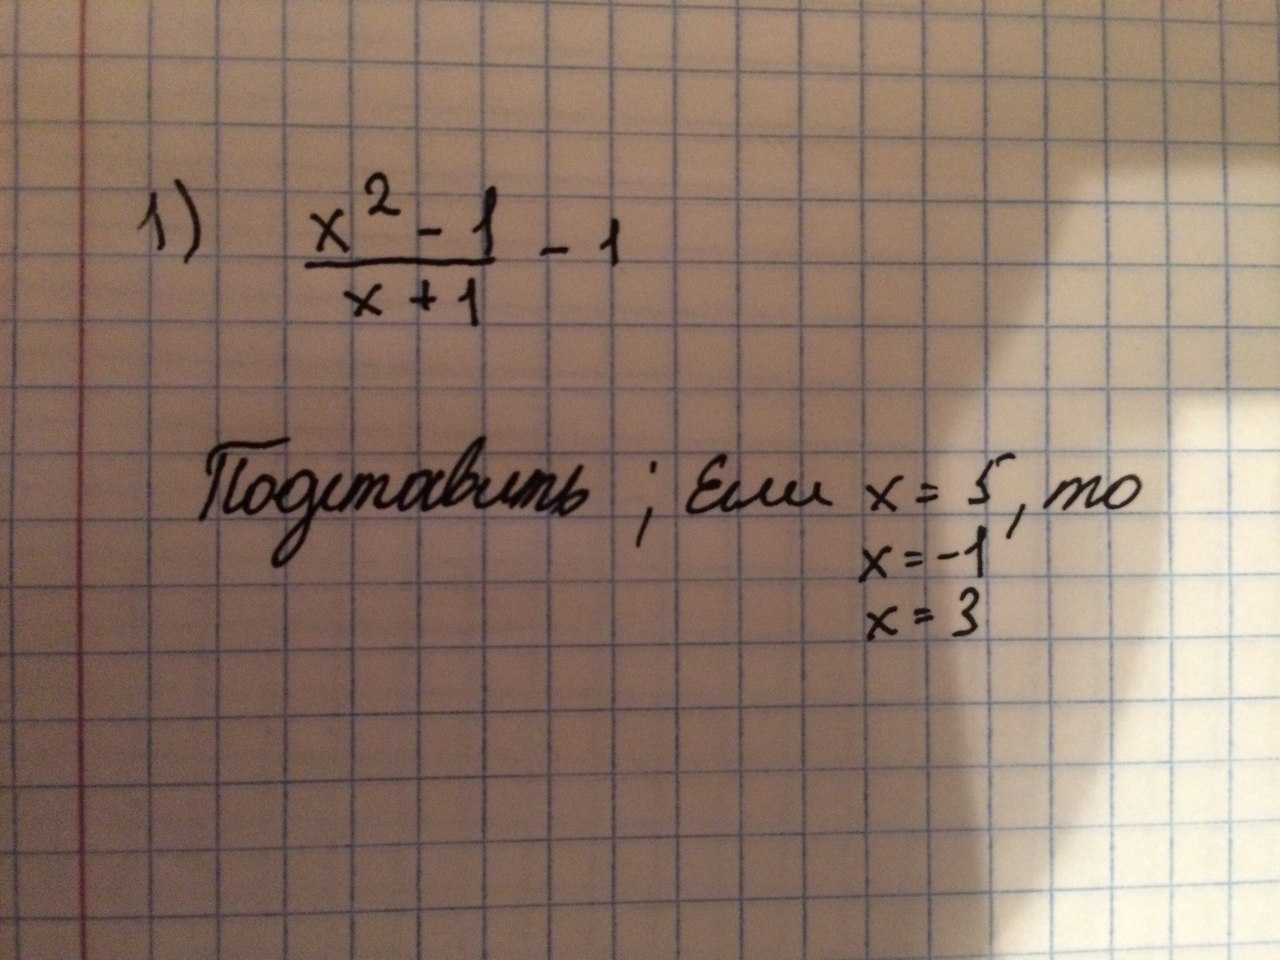 1) x² - 1
x + 1 - 1
Подставить ; Если x = 5, то
x = -1
x = 3